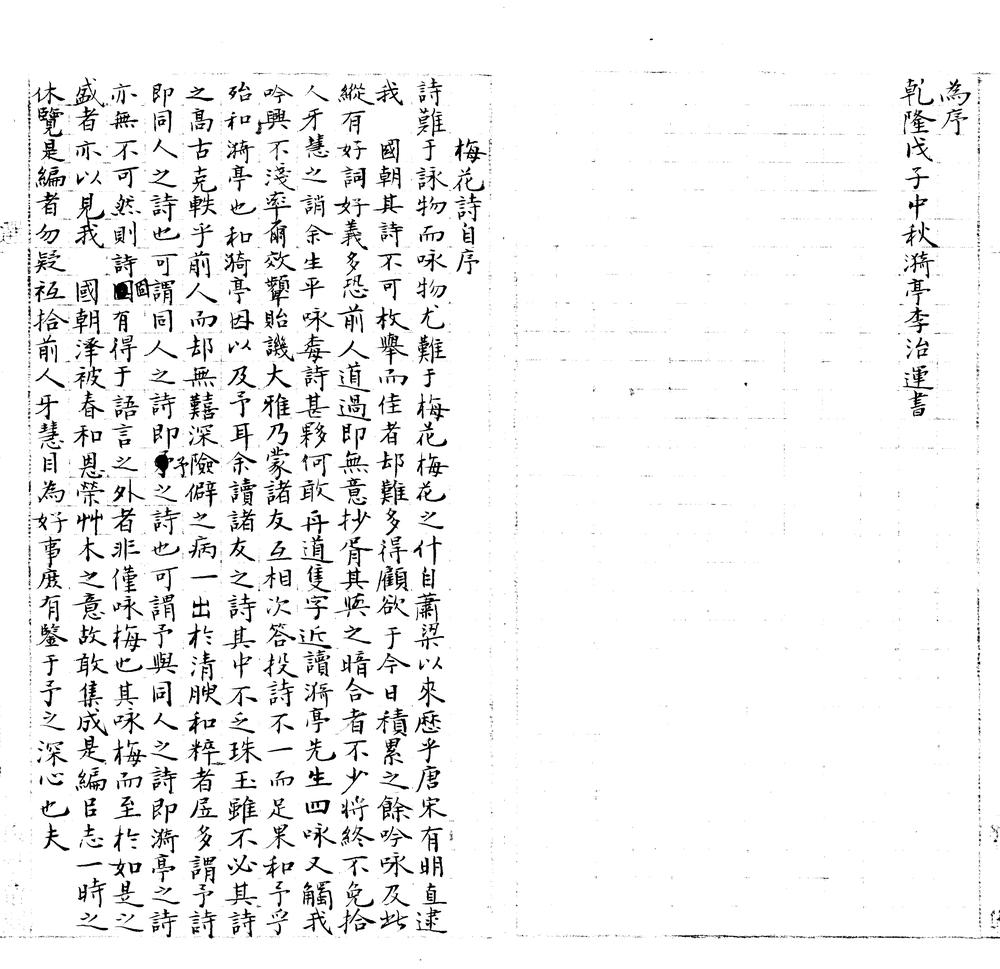 為序
乾隆戊子中秋漪亭李治運書
梅花詩自序
詩難于詠物而咏物尤難于梅花梅花之什自蕭梁以來歷乎唐宋有明直逮
我　國朝其詩不可枚舉而佳者却難多得顧欲于今日積累之餘吟咏及此
縱有好詞好義多恐前人道過即無意抄胥其與之暗合者不少將終不免拾
人牙慧之誚余生平咏每詩甚夥何敢再道隻字近讀漪亭先生四咏又觸我
吟興不淺率爾效顰貽譏大雅乃蒙諸友互相次答投詩不一而足果和予乎
殆和漪亭也和漪亭因以及予耳余讀諸友之詩其中不乏珠玉雖不必其詩
之高古克軼乎前人而却無囏深險僻之病一出於清腴和粹者居多謂予詩
即同人之詩也可謂同人之詩即予之詩也可謂予與同人之詩即漪亭之詩
亦無不可然則詩固有得于語言之外者非僅咏梅也其咏梅而至於如是之
盛者亦以見我　國朝澤被春和恩榮艸木之意故敢集成是編㠯志一時之
休覽是編者勿疑祗拾前人牙慧目為好事庶有鑒于予之深心也夫